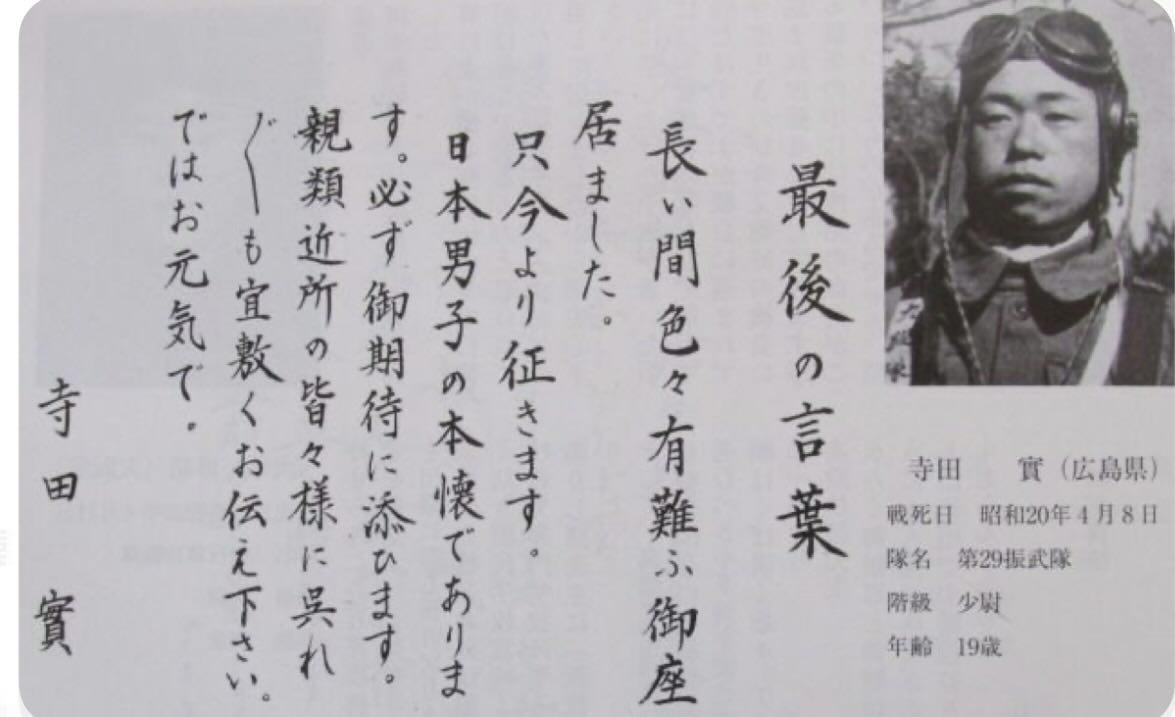 最後の言葉
長い間色々有難ふ御座
居ました。
只今より征きます。
日本男子の本懐でありま
す。必ず御期待に添ひます。
親類近所の皆々様に呉れ
〲も宜敷くお伝え下さい。
ではお元気で。
寺田 實
寺田 實（広島県）
戦死日 昭和20年4月8日
隊名 第29振武隊
階級 少尉
年齢 19歳